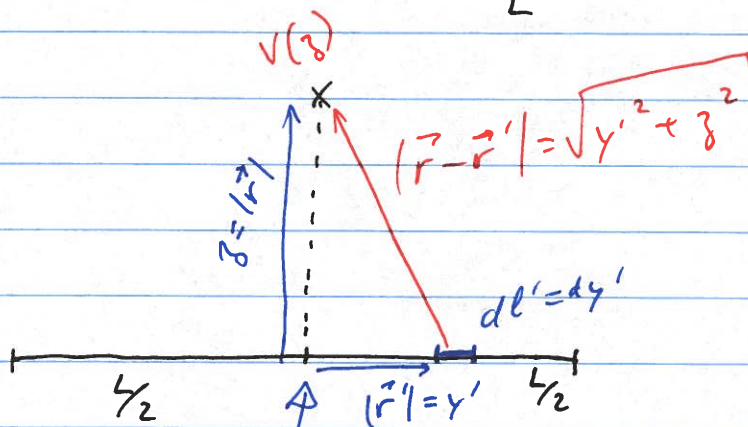 L
V(z)
|r⃗ - r⃗'| = √(y'² + z²)
z = |r⃗|
dl' = dy'
L/2
|r⃗'| = y'
L/2